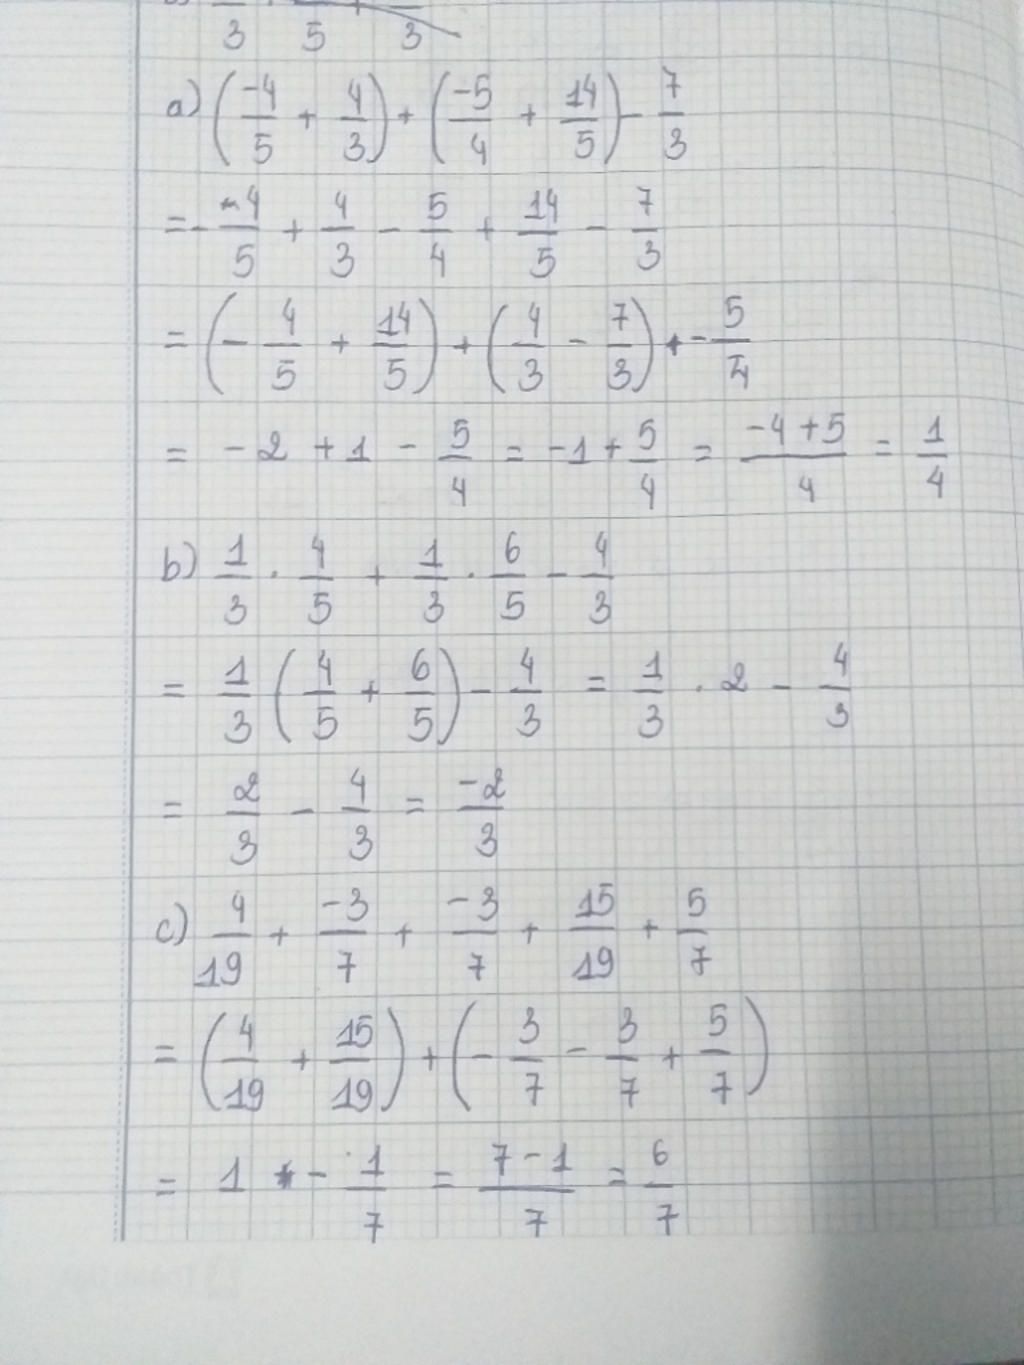 3 5 3
a) (-4/5 + 4/3) + (-5/4 + 14/5) - 7/3
= - 4/5 + 4/3 - 5/4 + 14/5 - 7/3
= (- 4/5 + 14/5) + (4/3 - 7/3) + - 5/4
= - 2 + 1 - 5/4 = -1 + 5/4 = -4+5/4 = 1/4
b) 1/3 . 4/5 + 1/3 . 6/5 - 4/3
= 1/3 (4/5 + 6/5) - 4/3 = 1/3 . 2 - 4/3
= 2/3 - 4/3 = -2/3
c) 4/19 + -3/7 + -3/7 + 15/19 + 5/7
= (4/19 + 15/19) + (- 3/7 - 3/7 + 5/7)
= 1 - 1/7 = 7-1/7 = 6/7